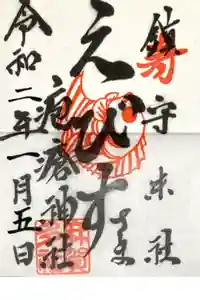 鎮守 末社
えびす
さま
疱瘡神社
令和二年一月五日